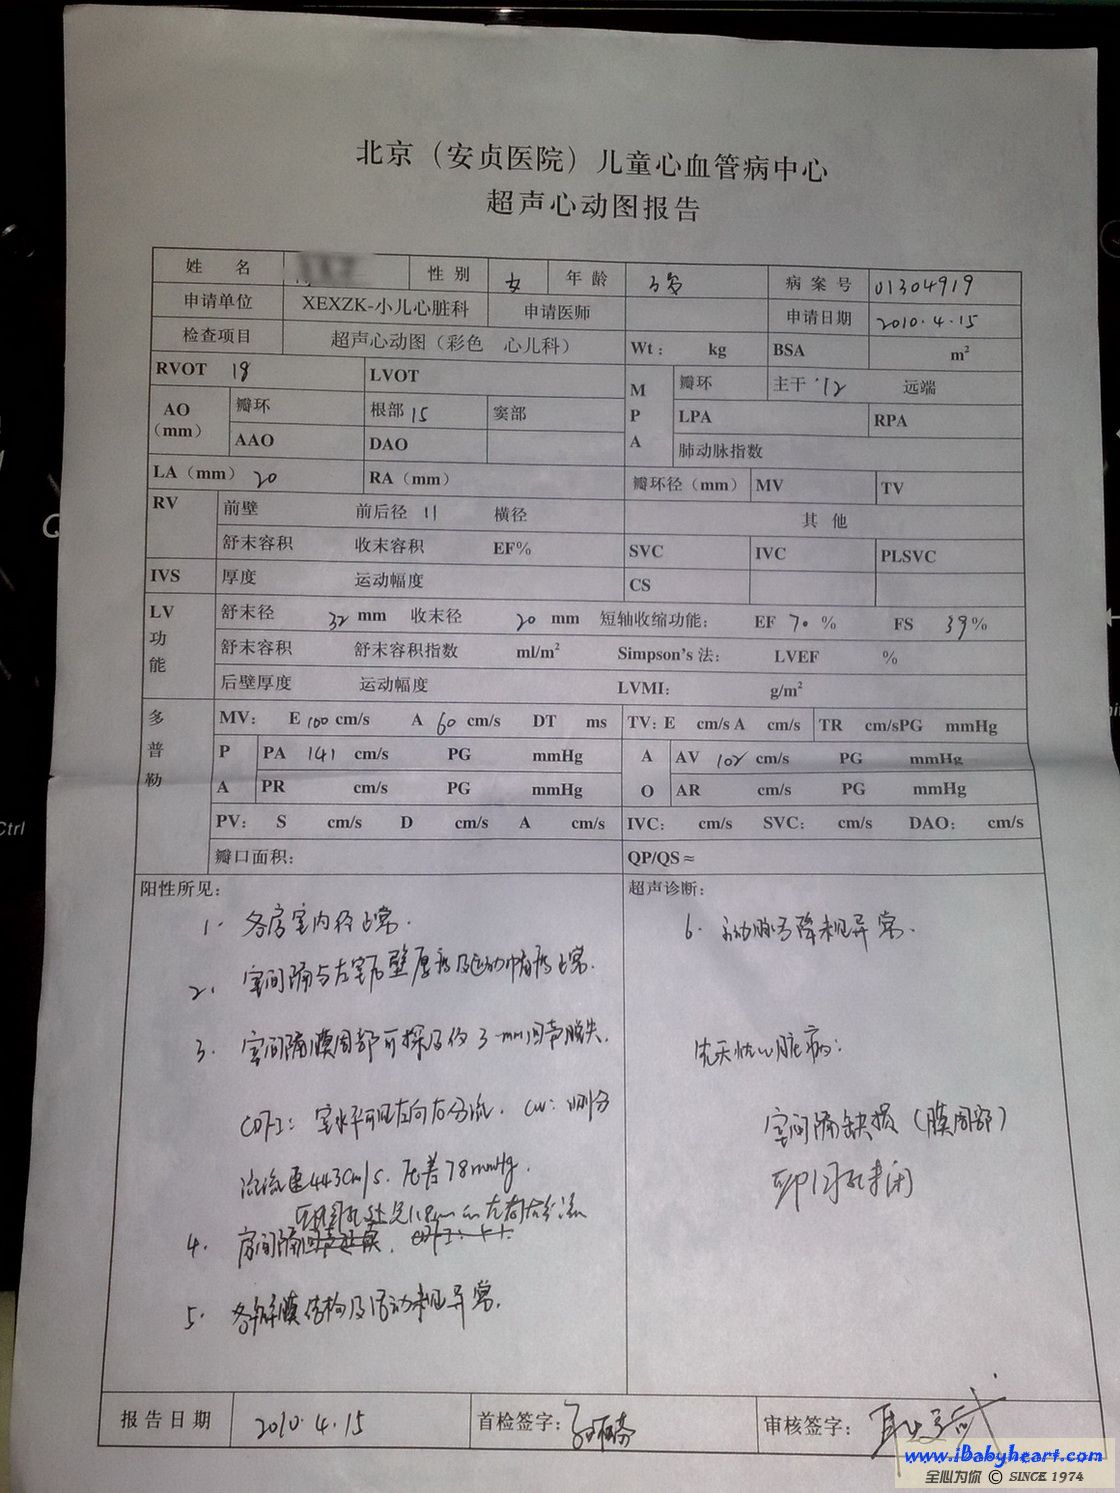 北京（安贞医院）儿童心血管病中心
超声心动图报告
姓 名 性 别 女 年 龄 3岁 病 案 号 01304919
申请单位 XEXZK-小儿心脏科 申请医师 申请日期 2010.4.15
检查项目 超声心动图（彩色 心儿科） Wt： kg BSA m²
RVOT 18 LVOT MPA 瓣环 主干 12 远端
AO（mm） 瓣环 根部 15 窦部 LPA RPA
AAO DAO 肺动脉指数
LA（mm） 20 RA（mm） 瓣环径（mm） MV TV
RV 前壁 前后径 11 横径 其 他
舒末容积 收末容积 EF% SVC IVC PLSVC
IVS 厚度 运动幅度 CS
LV功能 舒末径 32 mm 收末径 20 mm 短轴收缩功能： EF 70 % FS 39 %
舒末容积 舒末容积指数 ml/m² Simpson's 法： LVEF %
后壁厚度 运动幅度 LVMI： g/m²
多普勒 MV： E 100 cm/s A 60 cm/s DT ms TV：E cm/s A cm/s TR cm/sPG mmHg
PA PA 141 cm/s PG mmHg AO AV 102 cm/s PG mmHg
PR cm/s PG mmHg AR cm/s PG mmHg
PV： S cm/s D cm/s A cm/s IVC： cm/s SVC： cm/s DAO： cm/s
瓣口面积： QP/QS≈
阳性所见：
1. 各房室内径正常.
2. 室间隔与左室后壁厚度及运动幅度正常.
3. 室间隔膜周部可探及约3mm回声脱失.
CDFI: 室水平可见左向右分流. CW: 测分
流流速443cm/s. 压差78mmHg.
卵圆孔处见1.8mm左向右分流
4. 房间隔
5. 各瓣膜结构及活动未见异常.
超声诊断：
6. 主动脉弓降未见异常.
先天性心脏病:
室间隔缺损（膜周部）
卵圆孔未闭
报告日期 2010.4.15 首检签字： 审核签字：
www.iBabyheart.com
全心为你 © SINCE 1974